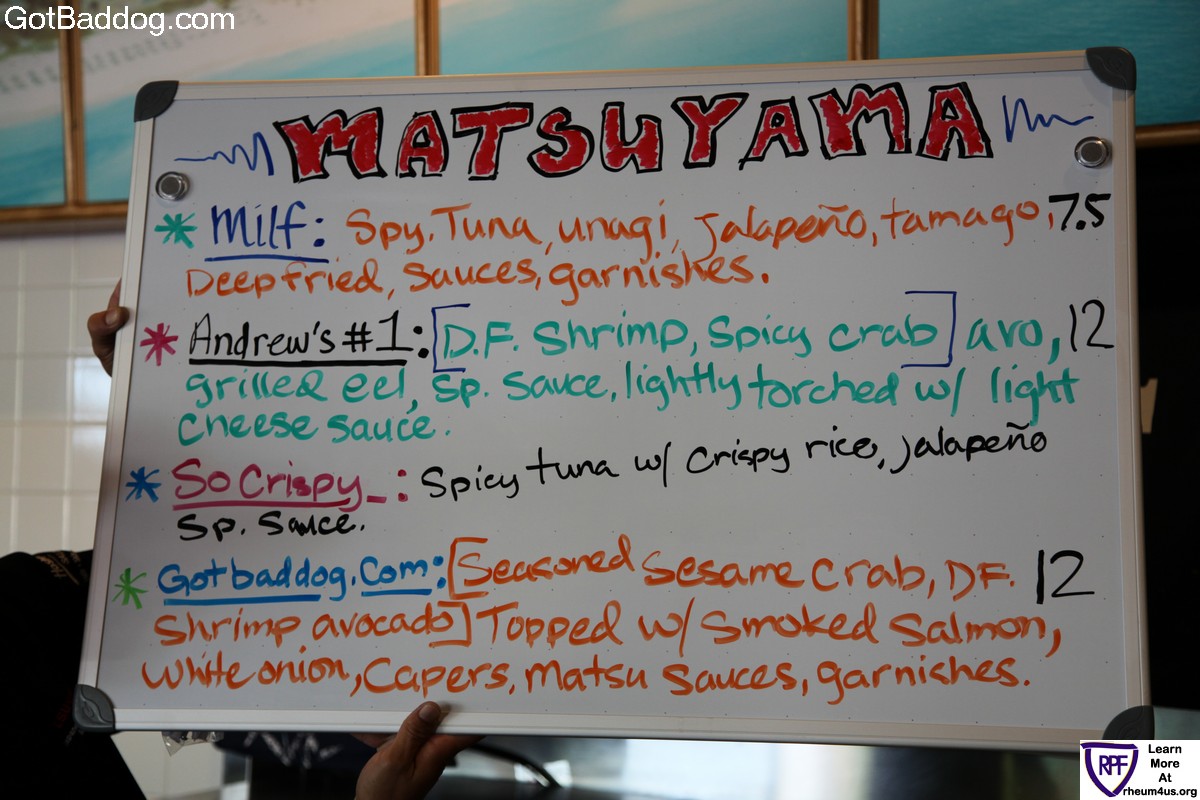 GotBaddog.com
MATSUYAMA
* Milf: Spy. Tuna, unagi, jalapeño, tamago, 7.5
Deep fried, sauces, garnishes.
* Andrew's #1: [D.F. Shrimp, Spicy crab] avo, 12
grilled eel, sp. sauce, lightly torched w/ light
cheese sauce.
* So Crispy_: Spicy tuna w/ crispy rice, jalapeño
Sp. Sauce.
* Gotbaddog.com: [Seasoned Sesame Crab, DF. 12
Shrimp avocado] Topped w/ smoked salmon,
white onion, capers, matsu sauces, garnishes.
RPF
Learn
More
At
rheum4us.org